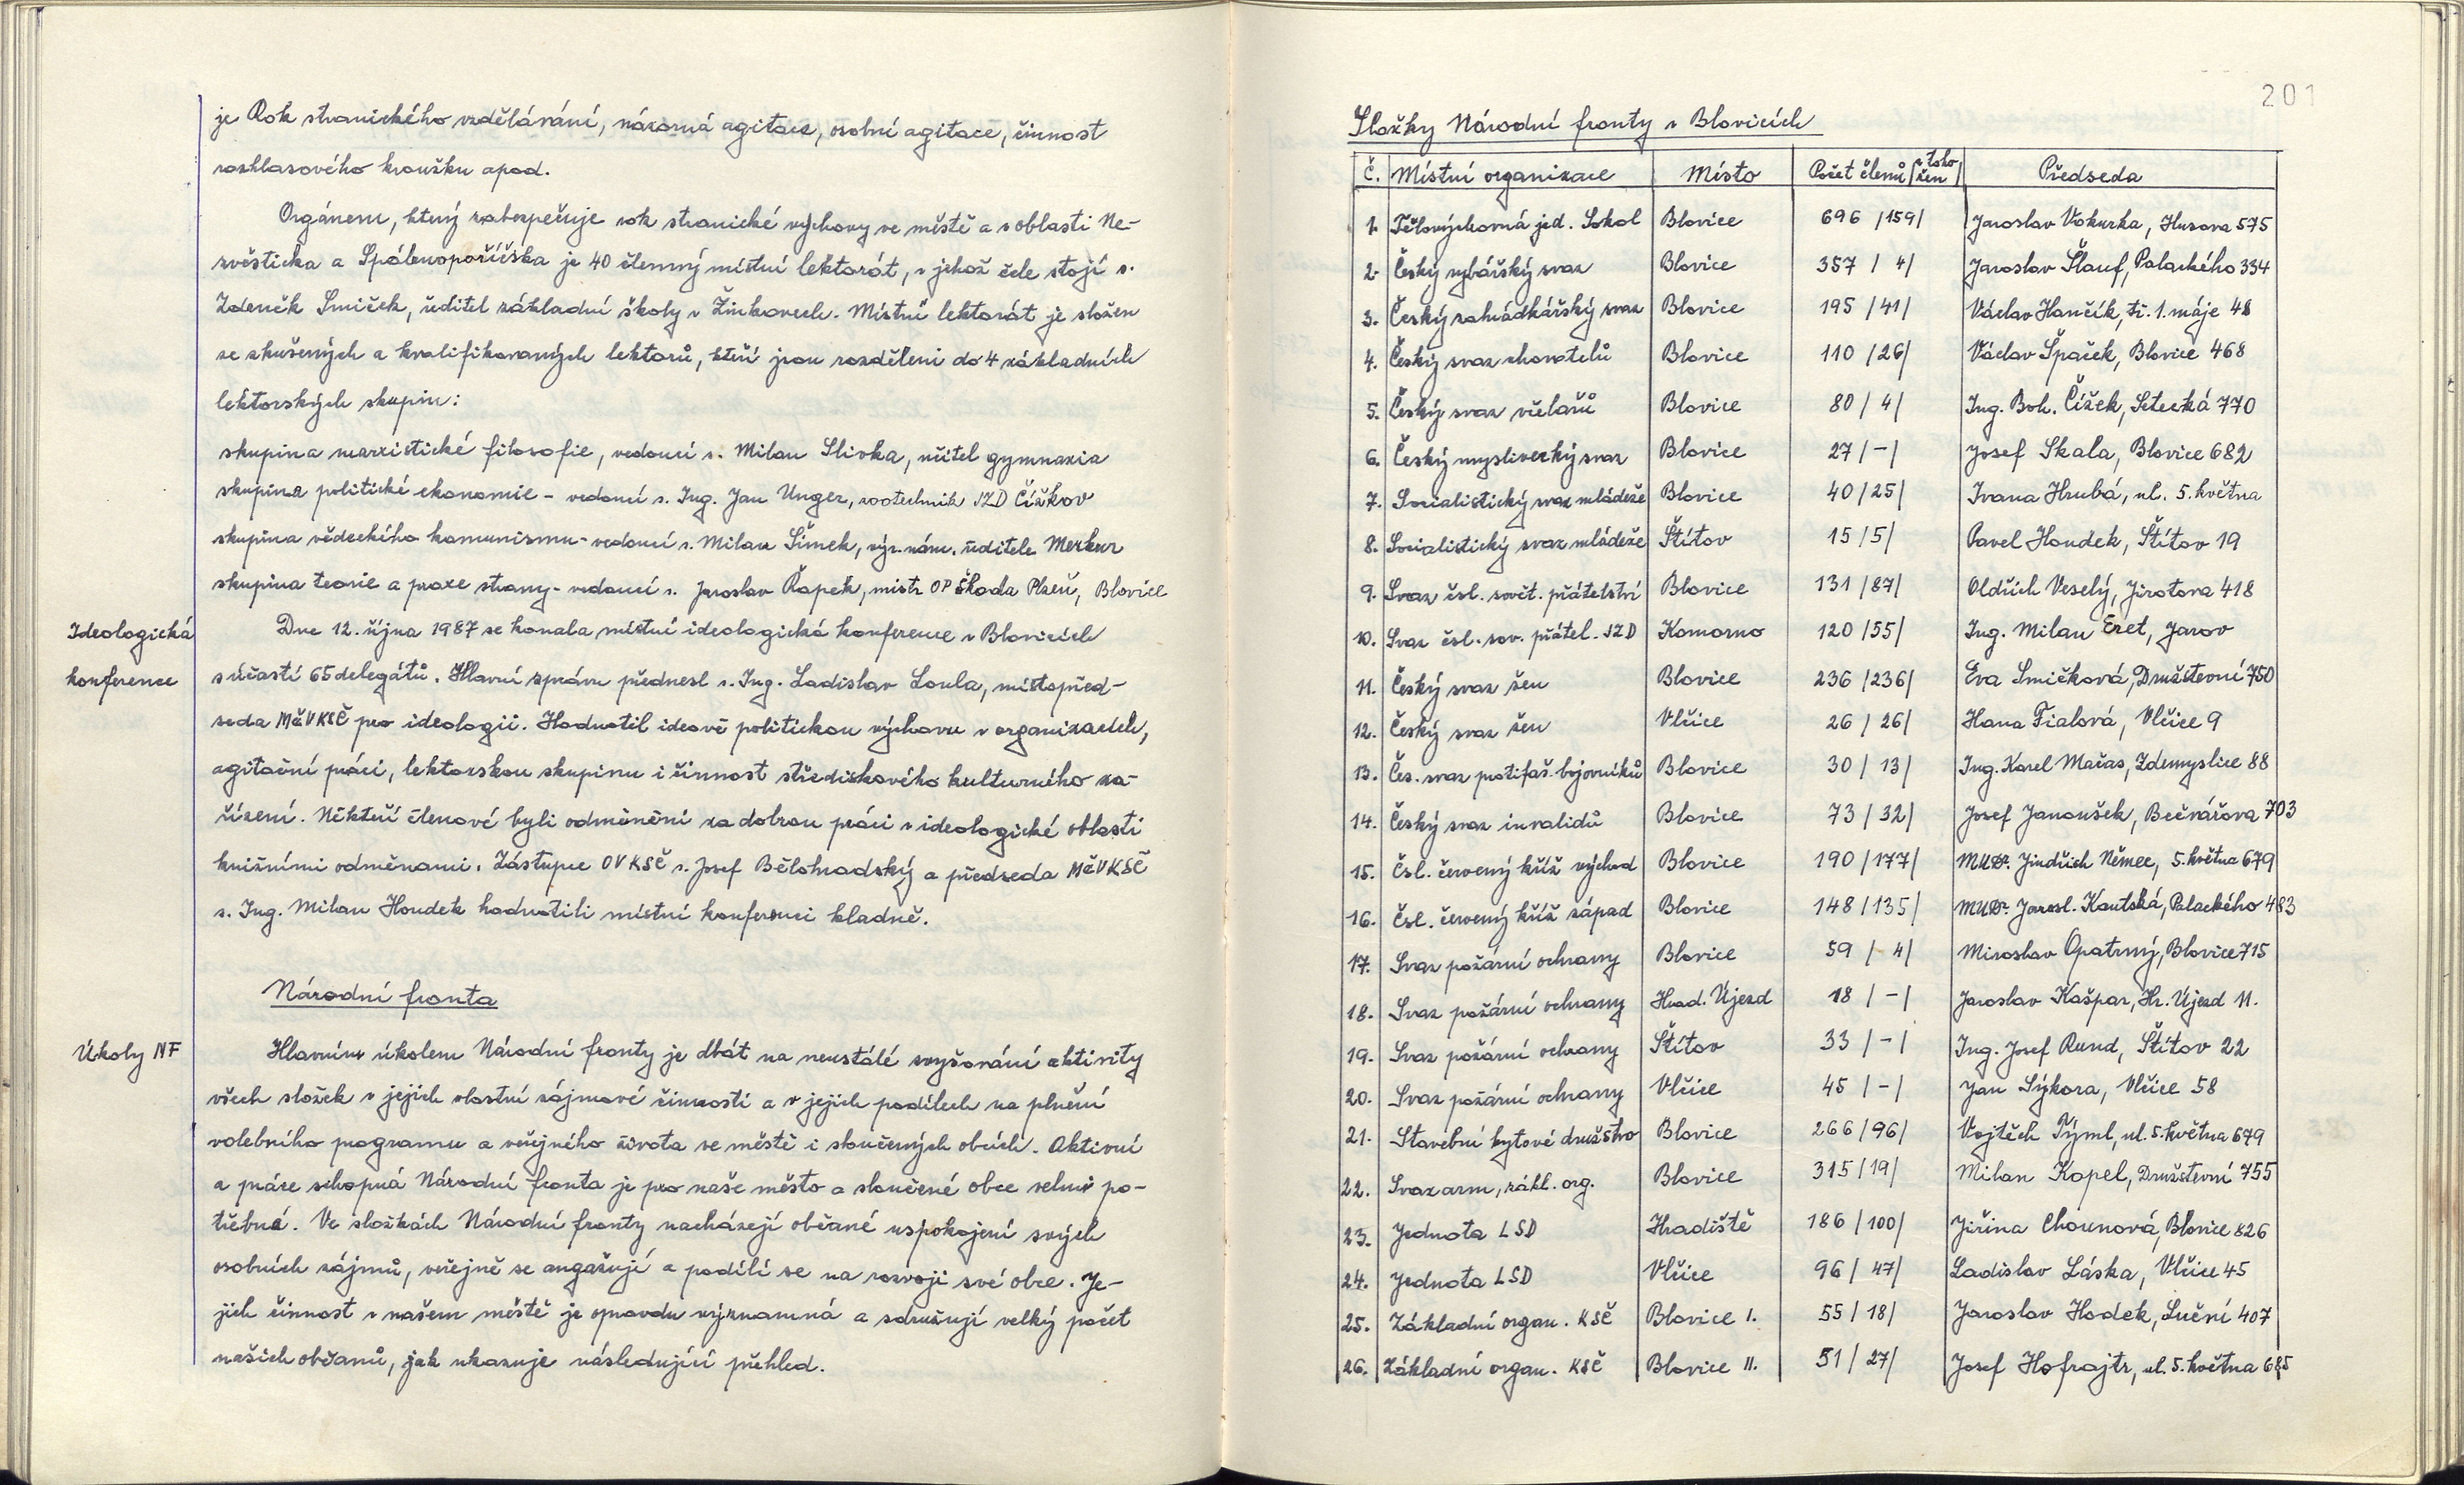 je Rok stranického vzdělávání, názorná agitace, osobní agitace, činnost
rozhlasového kroužku apod.
Orgánem, který zabezpečuje rok stranické výchovy ve městě a v oblasti Ne-
zvěsticka a Spálenopoříčska je 40 členný místní lektorát, v jehož čele stojí s.
Zdeněk Smíček, ředitel základní školy v Žinkovech. Místní lektorát je složen
ze zkušených a kvalifikovaných lektorů, kteří jsou rozděleni do 4 základních
lektorských skupin:
skupina marxistické filosofie, vedoucí s. Milan Slivka, učitel gymnazia
skupina politické ekonomie - vedoucí s. Ing. Jan Unger, zootechnik JZD Čížkov
skupina vědeckého komunismu - vedoucí s. Milan Šimek, výr. nám. ředitele Merkur
skupina teorie a praxe strany - vedoucí s. Jaroslav Řapek, mistr OP Škoda Plzeň, Blovice
Ideologická
konference
Dne 12. října 1987 se konala místní ideologická konference v Blovicích
s účastí 65 delegátů. Hlavní zprávu přednesl s. Ing. Ladislav Loula, místopřed-
seda MěV KSČ pro ideologii. Hodnotil ideově politickou výchovu v organizacích,
agitační práci, lektorskou skupinu i činnost střediskového kulturního za-
řízení. Někteří členové byli odměněni za dobrou práci v ideologické oblasti
knižními odměnami. Zástupce OV KSČ s. Josef Bělohradský a předseda MěV KSČ
s. Ing. Milan Houdek hodnotili místní konferenci kladně.
Národní fronta
Úkoly NF
Hlavním úkolem Národní fronty je dbát na neustálé zvyšování aktivity
všech složek v jejich vlastní zájmové činnosti a v jejich podílech na plnění
volebního programu a veřejného života ve městě i sloučených obcích. Aktivní
a práce schopná Národní fronta je pro naše město a sloučené obce velmi po-
třebná. Ve složkách Národní fronty nacházejí občané uspokojení svých
osobních zájmů, veřejně se angažují a podílí se na rozvoji své obce. Je-
jich činnost v našem městě je opravdu významná a sdružují velký počet
našich občanů, jak ukazuje následující přehled.
201
Složky Národní fronty v Blovicích
Č. Místní organizace Místo Počet členů /z toho žen/ Předseda
1. Tělovýchovná jed. Sokol Blovice 696 /159/ Jaroslav Vokurka, Husova 575
2. Český rybářský svaz Blovice 357 / 4/ Jaroslav Šlauf, Palackého 334
3. Český zahrádkářský svaz Blovice 195 /41/ Václav Hančík, tř. 1. máje 48
4. Český svaz chovatelů Blovice 110 /26/ Václav Špaček, Blovice 468
5. Český svaz včelařů Blovice 80 / 4/ Ing. Boh. Čížek, Setecká 770
6. Český myslivecký svaz Blovice 27 / - / Josef Skala, Blovice 682
7. Socialistický svaz mládeže Blovice 40 /25/ Ivana Hrubá, ul. 5. května
8. Socialistický svaz mládeže Štítov 15 /5/ Pavel Houdek, Štítov 19
9. Svaz čsl. sovět. přátelství Blovice 131 /87/ Oldřich Veselý, Jirotova 418
10. Svaz čsl. sov. přátel. JZD Komorno 120 /55/ Ing. Milan Eret, Jarov
11. Český svaz žen Blovice 236 /236/ Eva Smíčková, Družstevní 750
12. Český svaz žen Vlčice 26 / 26/ Hana Fialová, Vlčice 9
13. Čes. svaz protifaš. bojovníků Blovice 30 / 13/ Ing. Karel Mačas, Zdemyslice 88
14. Český svaz invalidů Blovice 73 / 32/ Josef Janoušek, Bečvářova 703
15. Čsl. červený kříž východ Blovice 190 /177/ MUDr. Jindřich Němec, 5. května 679
16. Čsl. červený kříž západ Blovice 148 /135/ MUDr. Jarosl. Kautská, Palackého 483
17. Svaz požární ochrany Blovice 59 / 4/ Miroslav Opatrný, Blovice 715
18. Svaz požární ochrany Hrad. Újezd 18 / - / Jaroslav Kašpar, Hr. Újezd 11.
19. Svaz požární ochrany Štítov 33 / - / Ing. Josef Rund, Štítov 22
20. Svaz požární ochrany Vlčice 45 / - / Jan Sýkora, Vlčice 58
21. Stavební bytové družstvo Blovice 266 /96/ Vojtěch Týml, ul. 5. května 679
22. Svazarm, zákl. org. Blovice 315 /19/ Milan Kopel, Družstevní 755
23. Jednota LSD Hradiště 186 /100/ Jiřina Chounová, Blovice 826
24. Jednota LSD Vlčice 96 / 47/ Ladislav Láska, Vlčice 45
25. Základní organ. KSČ Blovice I. 55 / 18/ Jaroslav Hodek, Luční 407
26. Základní organ. KSČ Blovice II. 51 / 27/ Josef Hofrajtr, ul. 5. května 685